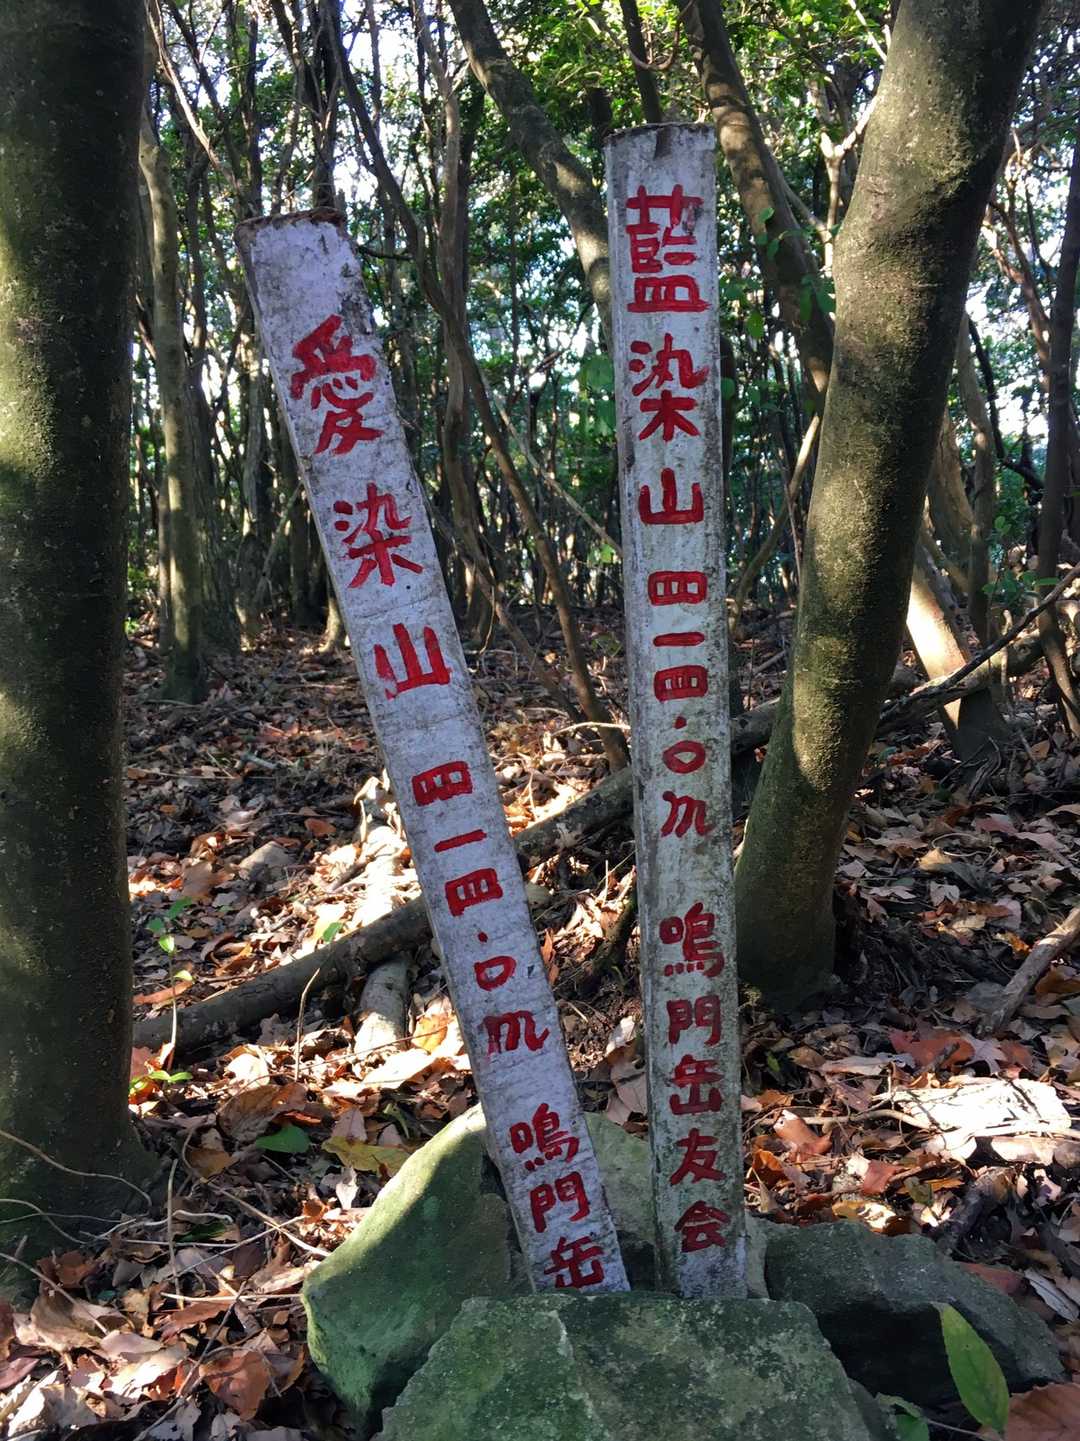 藍染山四一四・〇m 鳴門岳友会
愛染山 四一四・〇m 鳴門岳